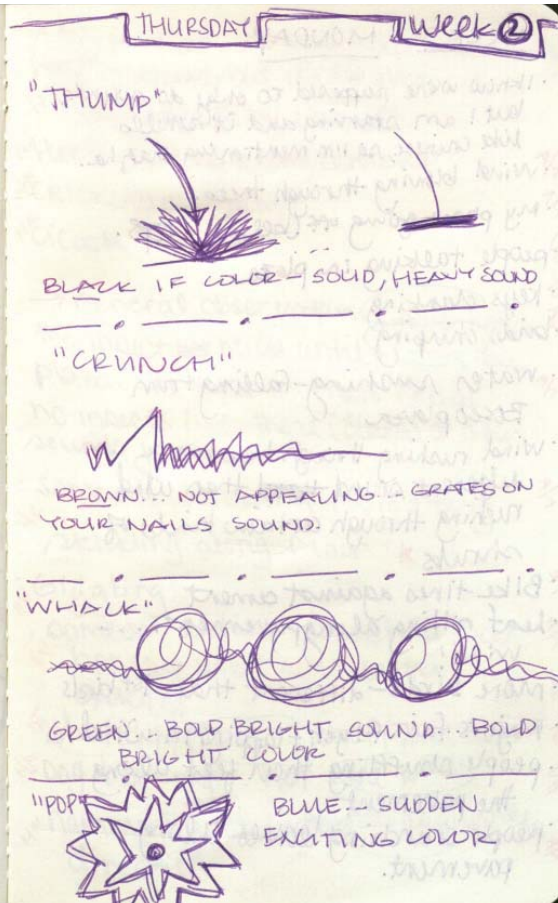 THURSDAY
WEEK 2
"THUMP"
BLACK IF COLOR - SOLID, HEAVY SOUND
"CRUNCH"
BROWN... NOT APPEALING... GRATES ON
YOUR NAILS SOUND.
"WHACK"
GREEN... BOLD BRIGHT SOUND... BOLD
BRIGHT COLOR
"POP"
BLUE... SUDDEN
EXCITING COLOR